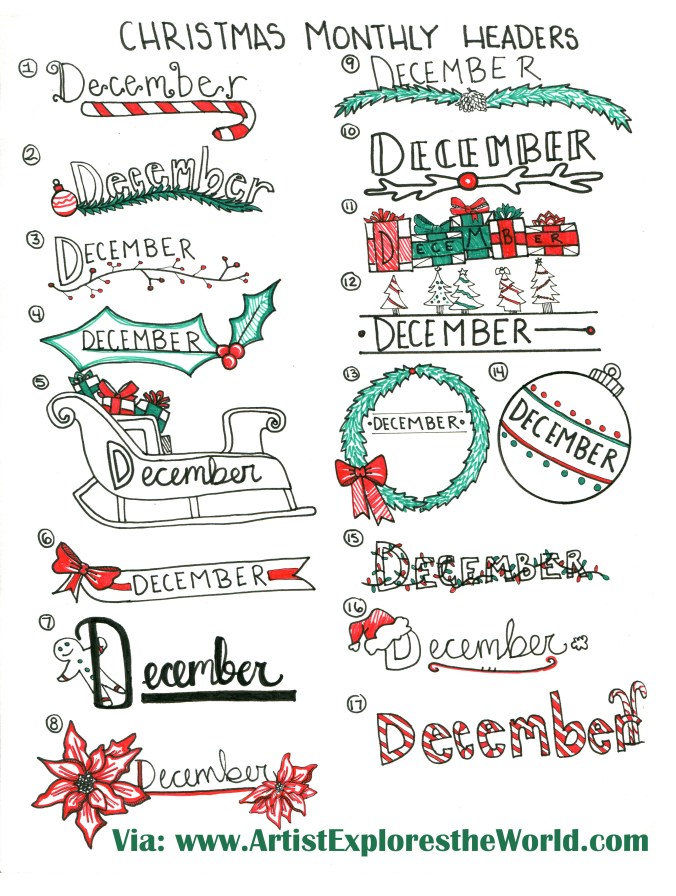 CHRISTMAS MONTHLY HEADERS
1
December
2
December
3
DECEMBER
4
DECEMBER
5
December
6
DECEMBER
7
December
8
December
9
DECEMBER
10
DECEMBER
11
DECEMBER
12
DECEMBER
13
•DECEMBER•
14
DECEMBER
15
DECEMBER
16
December
17
December
Via: www.ArtistExplorestheWorld.com